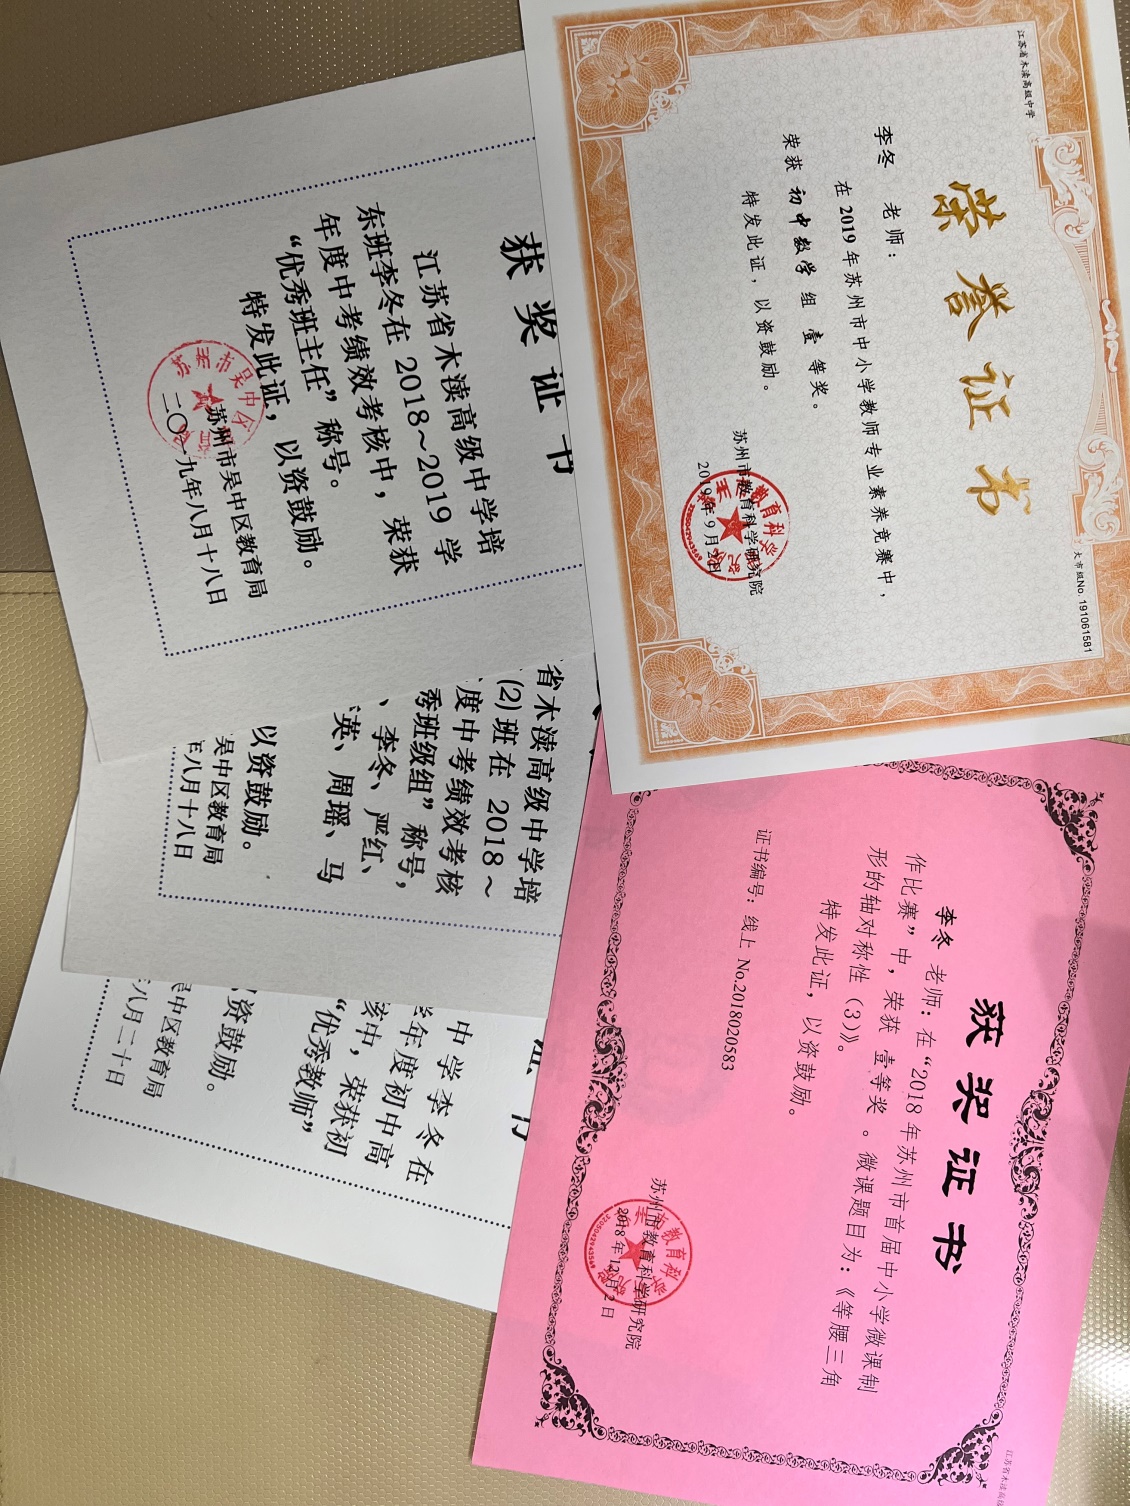 江苏省木渎高级中学
荣誉证书
大市级No. 191061581
李冬 老师：
在 2019 年苏州市中小学教师专业素养竞赛中，
荣获 初中数学 组 壹 等奖。
特发此证，以资鼓励。
苏州市教育科学研究院
2019年9月2日
获奖证书
李冬 老师：在“2018 年苏州市首届中小学微课制
作比赛”中，荣获 壹等奖 。微课题目为：《等腰三角
形的轴对称性（3）》。
特发此证，以资鼓励。
证书编号：线上 No.2018020583
苏州市教育科学研究院
2018年12月2日
获奖证书
江苏省木渎高级中学培
东班李冬在 2018～2019 学
年度中考绩效考核中，荣获
“优秀班主任”称号。
特发此证，以资鼓励。
苏州市吴中区教育局
二〇一九年八月十八日
省木渎高级中学培
(2)班在 2018～
度中考绩效考核
秀班级组”称号，
、李冬、严红、
英、周瑶、马
以资鼓励。
吴中区教育局
年八月十八日
中学李冬在
学年度初中高
核中，荣获初
“优秀教师”
资鼓励。
吴中区教育局
八月二十日